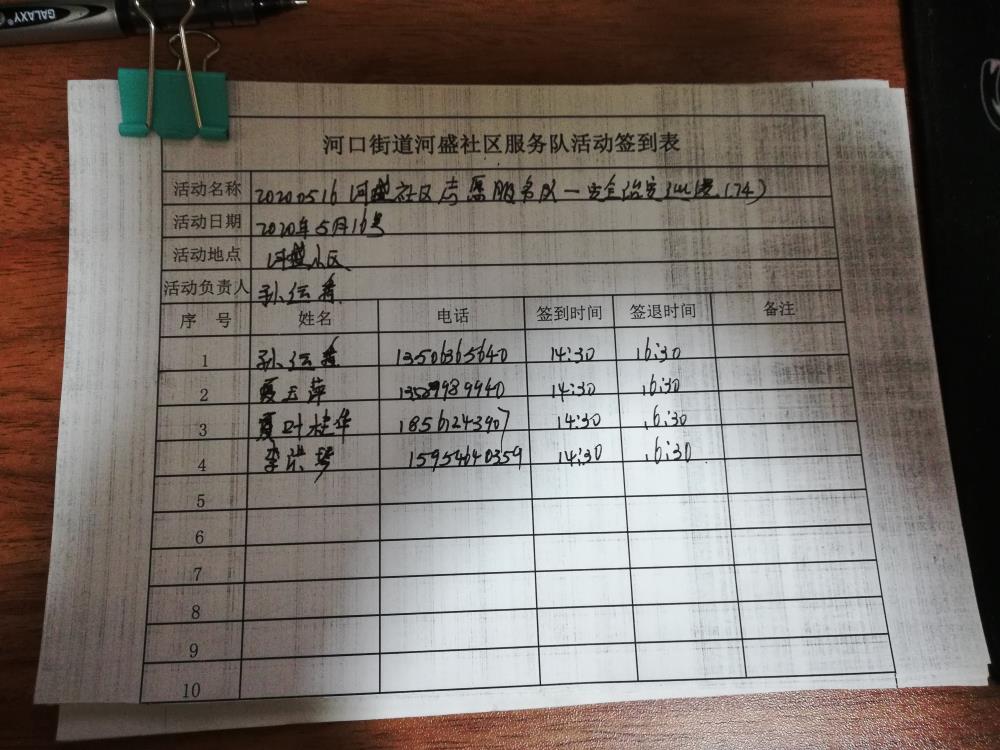 GALAXY
河口街道河盛社区服务队活动签到表
活动名称 20200516 河盛社区志愿服务队一安全治安巡逻(74)
活动日期 2020年5月16号
活动地点 河盛小区
活动负责人 孙
序 号 姓名 电话 签到时间 签退时间 备注
1 孙 13506365640 14:30 16:30
2 夏玉萍 13589989940 14:30 16:30
3 夏叶桂华 18561243907 14:30 16:30
4 李洪琴 15954640359 14:30 16:30
5
6
7
8
9
10